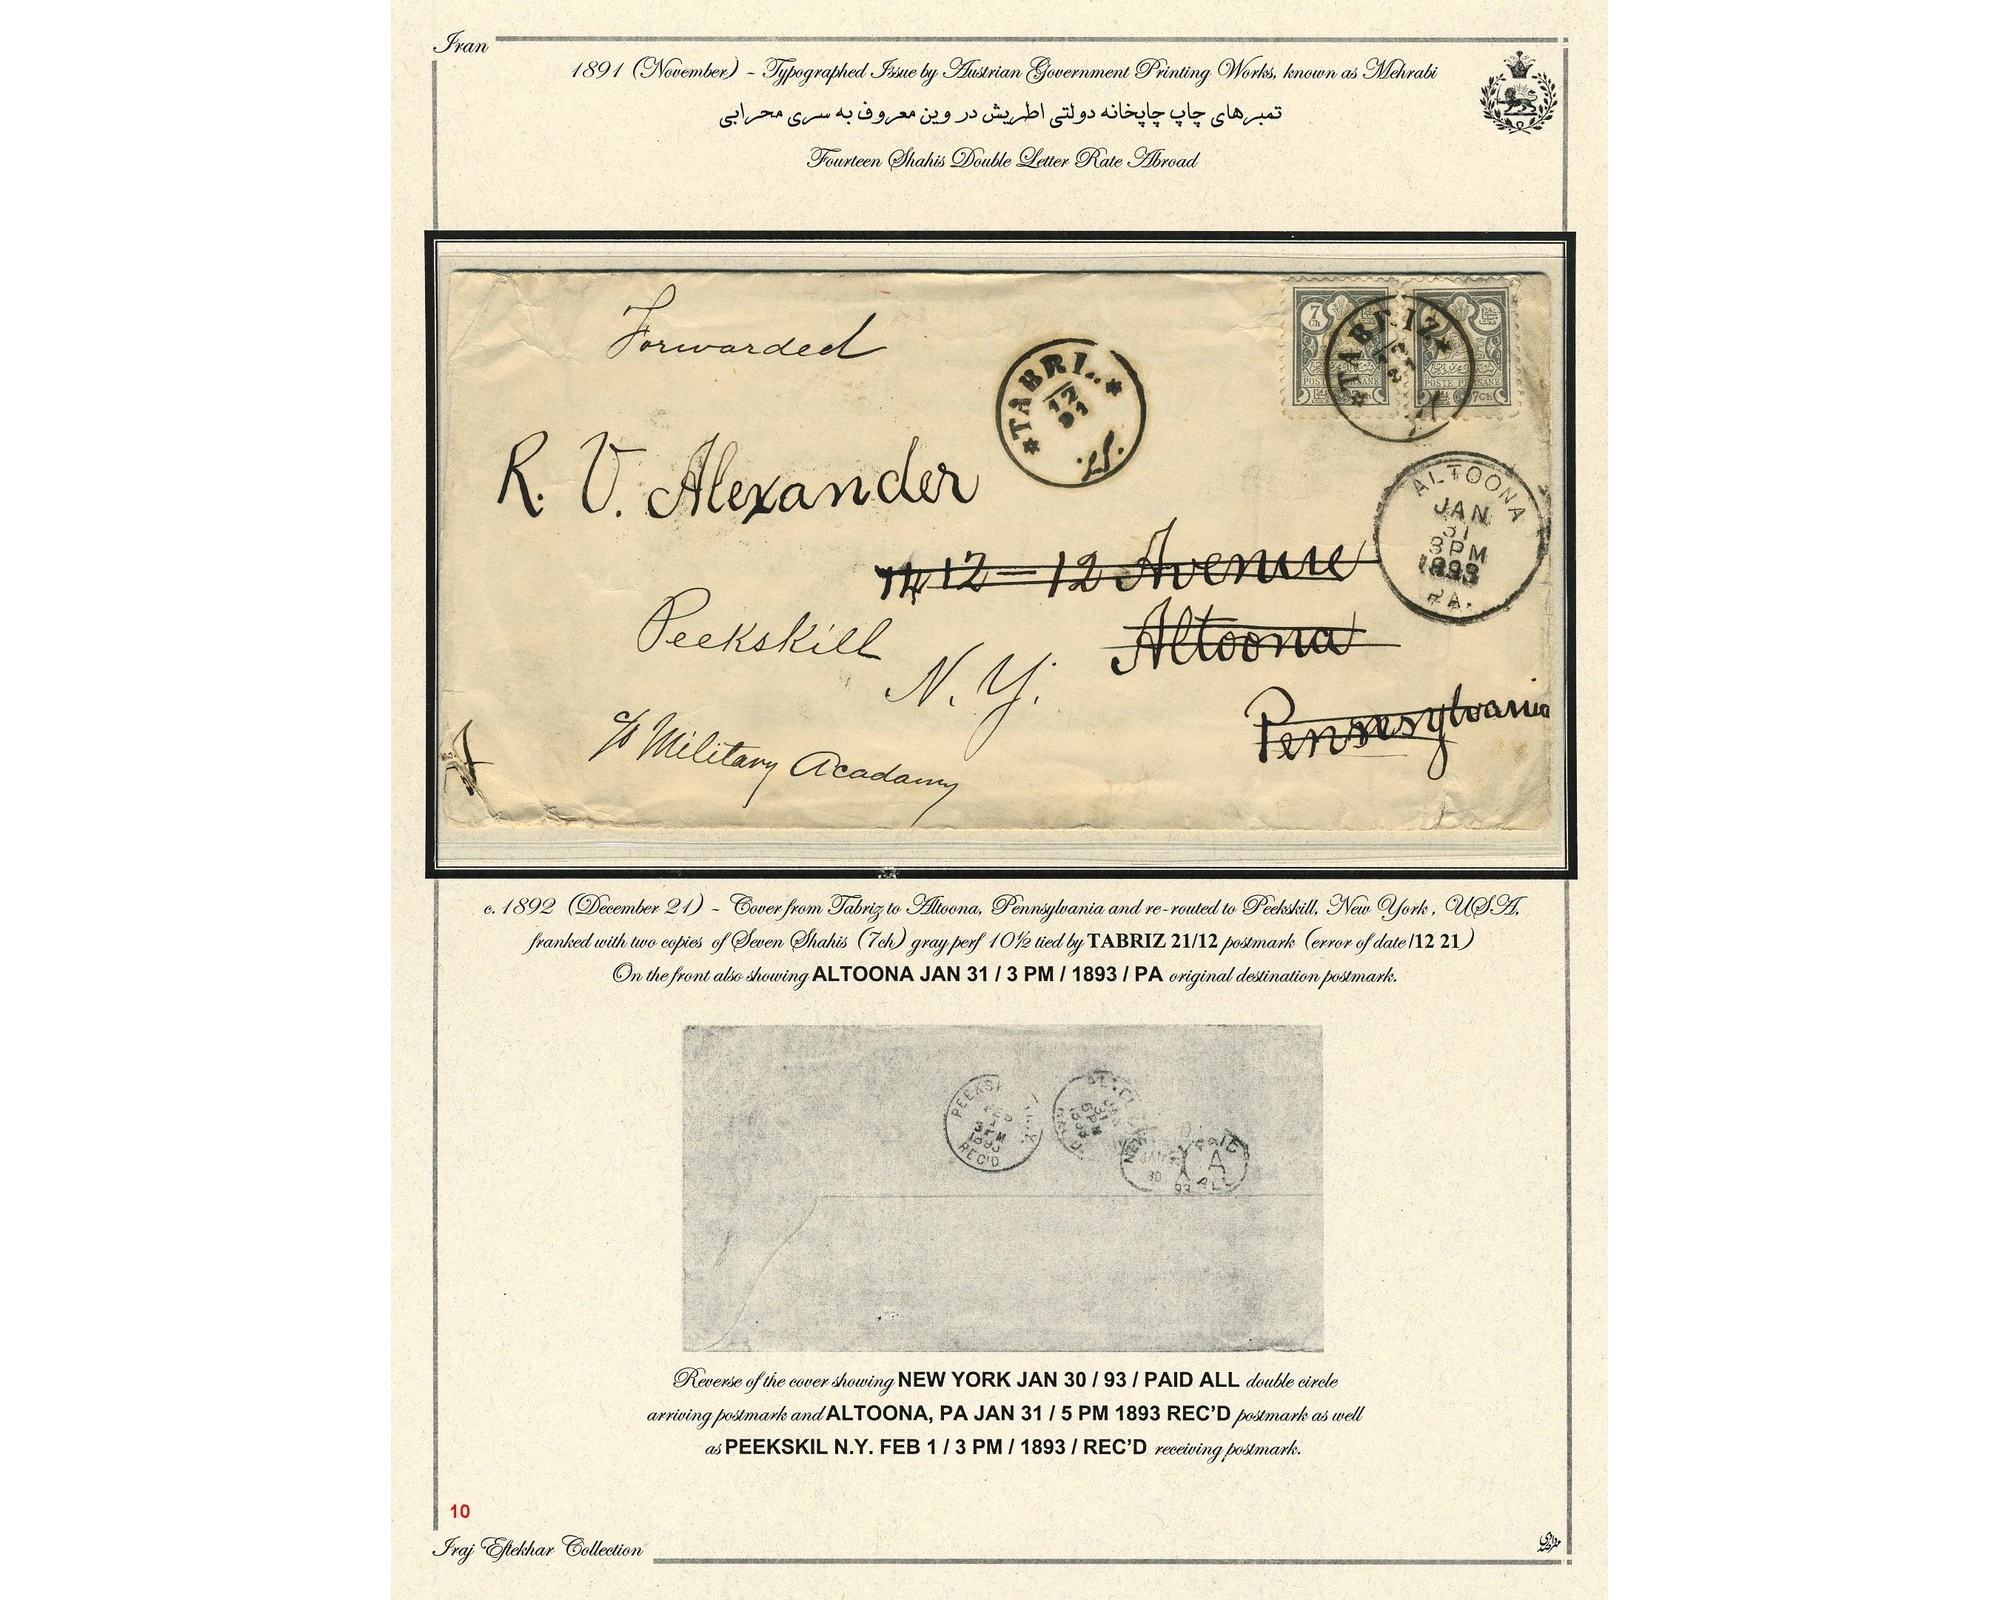 Iran
1891 (November) - Typographed Issue by Austrian Government Printing Works, known as Mehrabi
تمبرهای چاپ چاپخانه دولتی اطریش در وین معروف به سری محرابی
Fourteen Shahis Double Letter Rate Abroad
Forwarded
7
Ch
POSTE PERSANE
POSTE PERSANE
7Ch
TABRIZ
12
21
TABRI
12
R. V. Alexander
1412-12 Avenue
Altoona
Pennsylvania
ALTOONA
JAN
31
3PM
1893
PA.
Peekskill
N. Y.
c/o Military Acadamy
c. 1892 (December 21) - Cover from Tabriz to Altoona, Pennsylvania and re-routed to Peekskill, New York, USA,
franked with two copies of Seven Shahis (7ch) gray perf 10½ tied by TABRIZ 21/12 postmark (error of date /12 21)
On the front also showing ALTOONA JAN 31 / 3 PM / 1893 / PA original destination postmark.
PEEKS
REC'D
JAN
30
93
A
ALL
Reverse of the cover showing NEW YORK JAN 30 / 93 / PAID ALL double circle
arriving postmark and ALTOONA, PA JAN 31 / 5 PM 1893 REC'D postmark as well
as PEEKSKIL N.Y. FEB 1 / 3 PM / 1893 / REC'D receiving postmark.
10
Iraj Eftekhar Collection